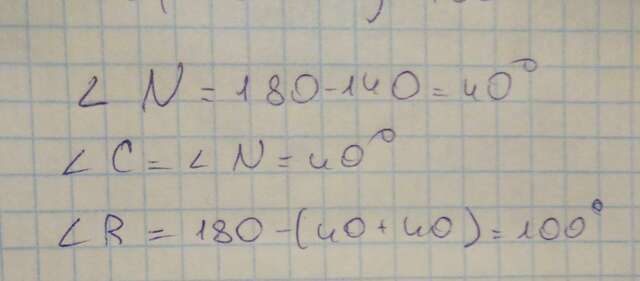 ∠ N = 180 - 140 = 40°
∠ C = ∠ N = 40°
∠ R = 180 - (40 + 40) = 100°